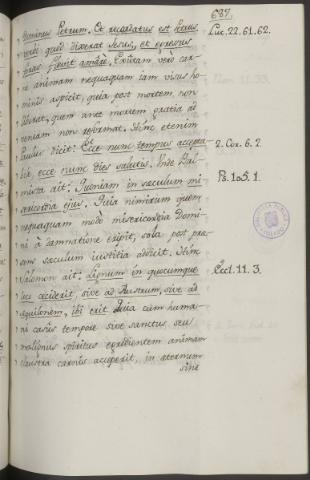 687.
Dominus Petrum. Et recordatus est Petrus
verbi quod dixerat Jesus, et egressus
foras flevit amare. Exutam vero car-
ne animam nequaquam jam visus ho-
minis aspicit, quia post mortem non
liberat, quem ante mortem gratia ad
veniam non reformat. Hinc etenim
Paulus dicit: Ecce nunc tempus accepta-
bile, ecce nunc dies salutis. Inde Psal-
mista ait: Quoniam in saeculum mi-
sericordia ejus. Quia nimirum quem
nequaquam modo misericordia Domi-
ni à damnatione eripit, sola post prae-
sens saeculum justitia addicit. Hinc
Salomon ait: Lignum in quocumque
loco ceciderit, sive ad Austrum, sive ad
aquilonem, ibi erit. Quia cum huma-
ni casus tempore sive sanctus seu
malignus spiritus egredientem animam
claustra carnis acceperit, in aeternum
sine
Luc. 22. 61. 62.
2. Cor. 6. 2.
Ps. 105. 1.
Eccl. 11. 3.